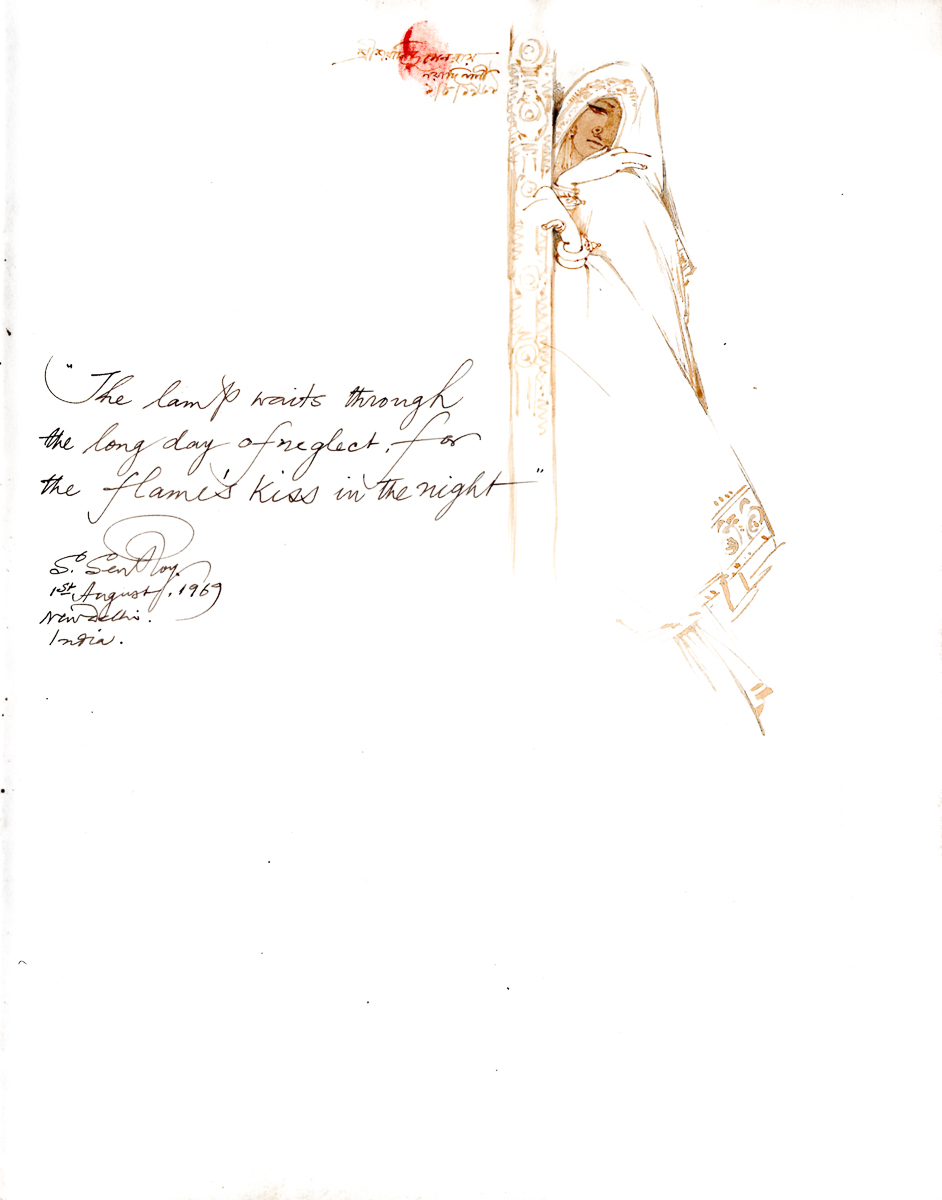 নয়াদিল্লী
"The lamp waits through
the long day of neglect, for
the flame's kiss in the night"
S. Sen Roy.
1st August, 1969
New Delhi.
India.